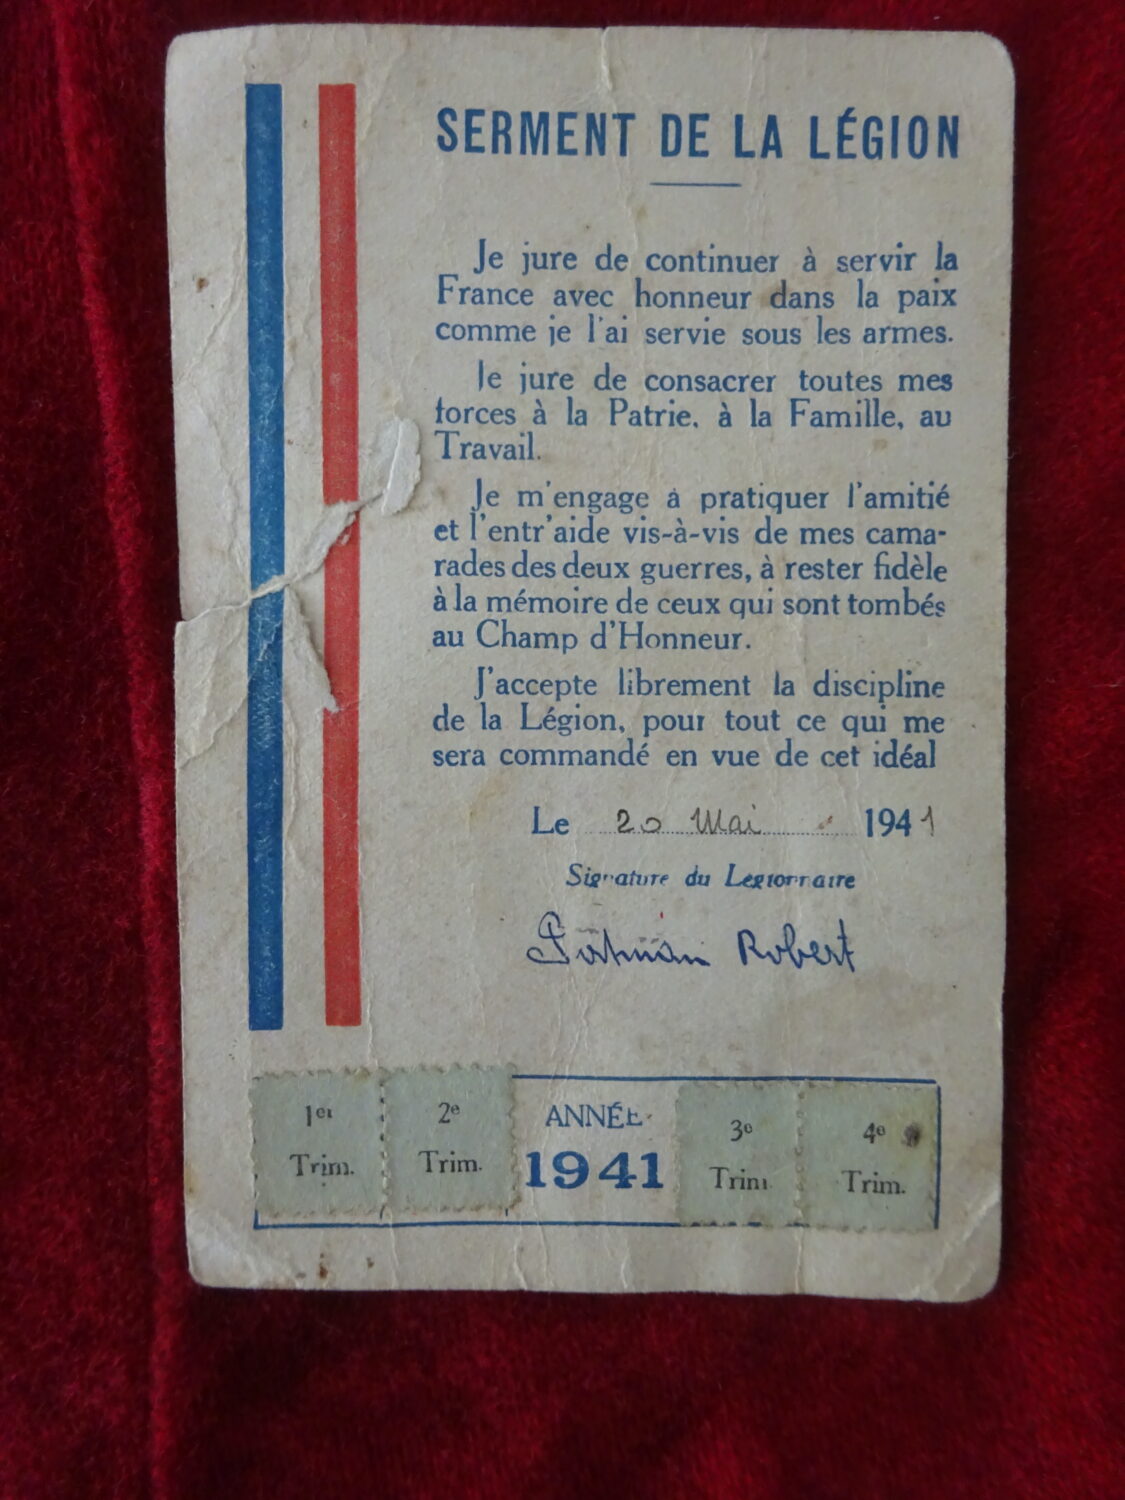 SERMENT DE LA LÉGION
Je jure de continuer à servir la
France avec honneur dans la paix
comme je l'ai servie sous les armes.
Je jure de consacrer toutes mes
forces à la Patrie, à la Famille, au
Travail.
Je m'engage à pratiquer l'amitié
et l'entr'aide vis-à-vis de mes cama-
rades des deux guerres, à rester fidèle
à la mémoire de ceux qui sont tombés
au Champ d'Honneur.
J'accepte librement la discipline
de la Légion, pour tout ce qui me
sera commandé en vue de cet idéal
Le 20 Mai 1941
Signature du Légionnaire
Robert
1er Trim.
2e Trim.
ANNÉE
1941
3e Trim.
4e Trim.